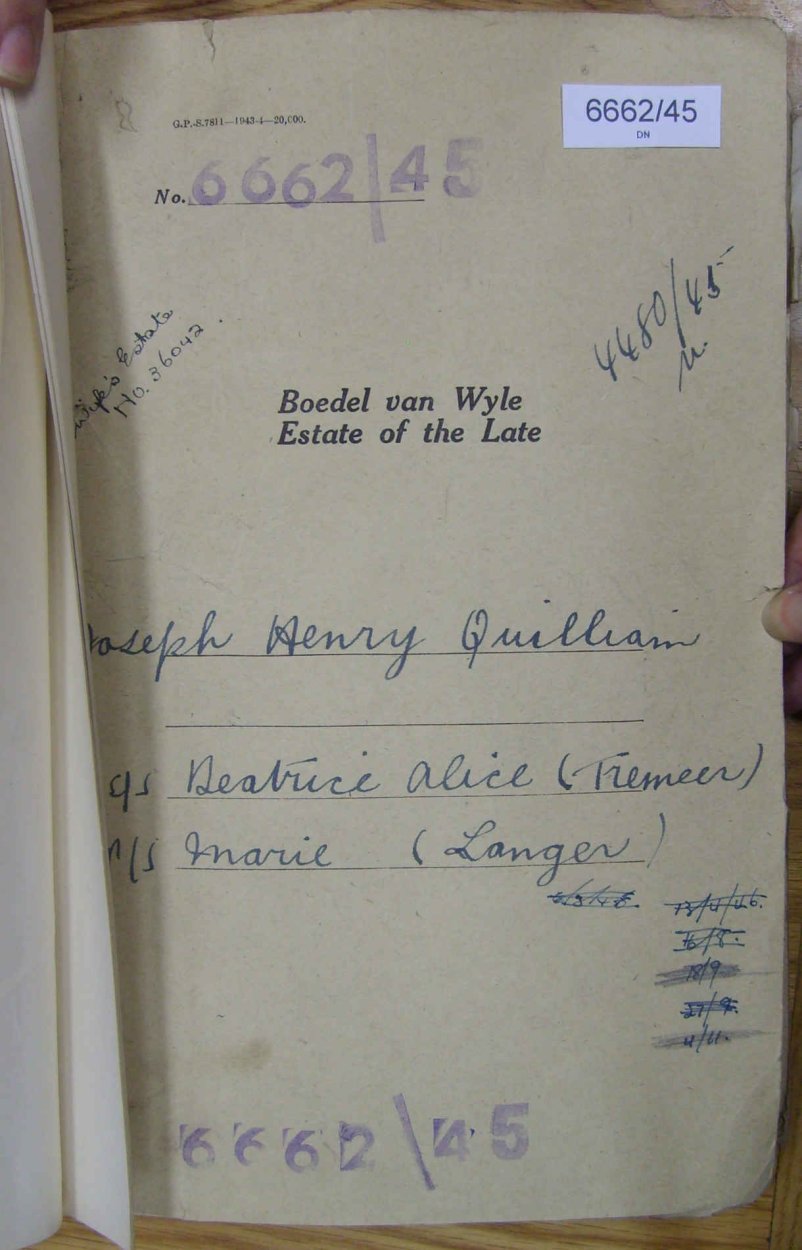 6662/45
DN
G.P.-S.7811—1943-4—20,000.
No. 6662/45
4480/45
Wife's Estate
No. 36042.
Boedel van Wyle
Estate of the Late
Joseph Henry Quilliam
q/s Beatrice Alice (Tremeer)
n/s Marie (Langer)
13/4/46.
18/9
27/9.
4/11.
6662/45